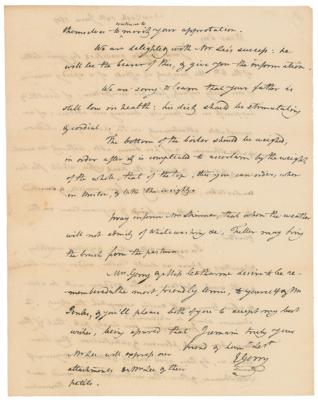 themselves to merit your approbation.
We are delighted with Mr Lee's success: he
will be the bearer of this, & give you the information
We are sorry to learn that your father is
still low in health: his diet should be stimulating
& cordial.
The bottom of the boiler should be weighed,
in order after it is compleated to ascertain by the weight
of the whole, that of the top: this you can order, when
in Boston, & take the weight.
pray inform Mr Skinner, that when the weather
will not admit of whitewashing &c, Fuller may bring
the brush from the pasture.
Mrs Gerry & Miss Catharine desire to be re-
membered in the most friendly terms, to yourself & Mr
& you'll please both of you to accept my best
wishes, being assured that I remain truly your
friend & huml Sevt
E Gerry
Mr Lee will express our
attachments to Mrs Lee & their
petits.